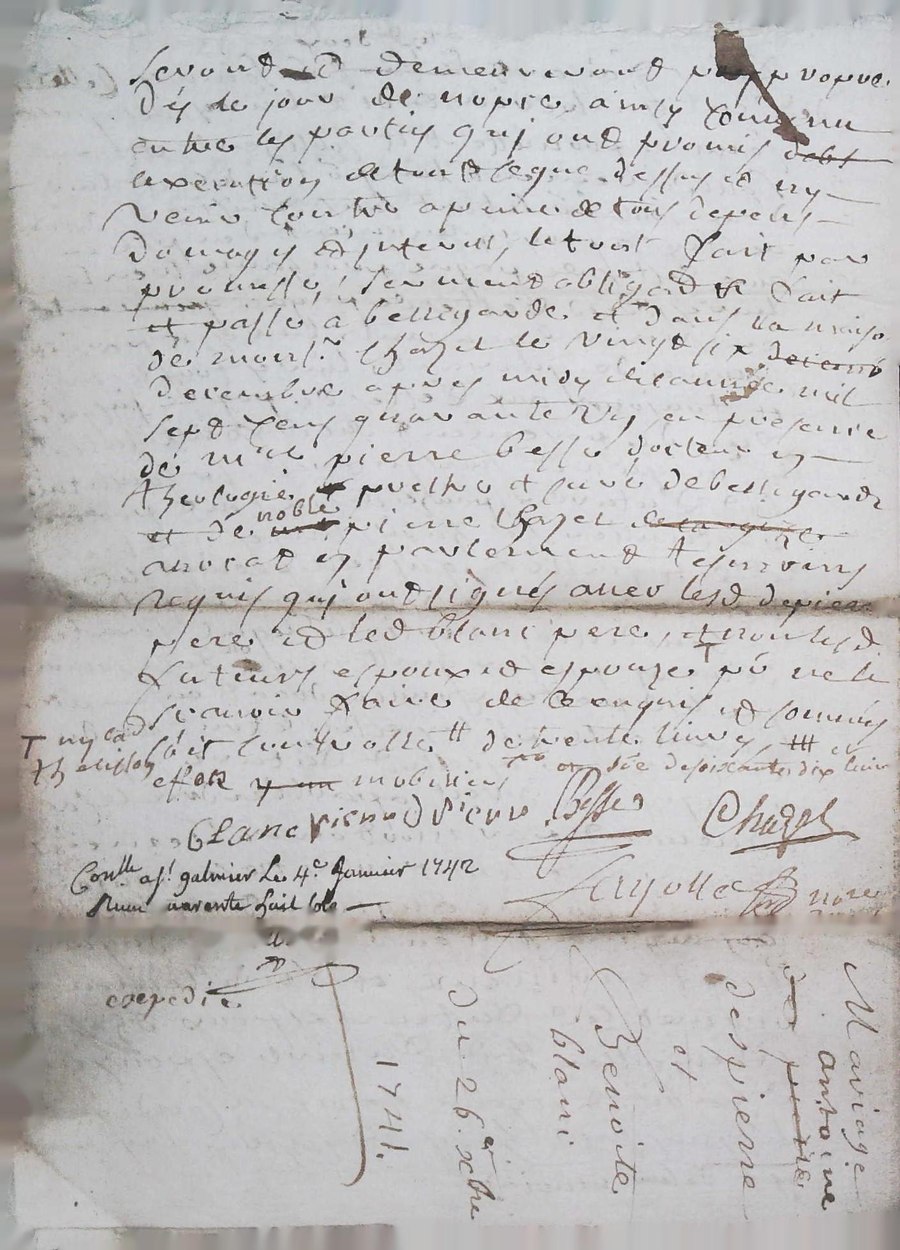 seront et demeureront propre
des le jour de nopce ainsy convenu
entre les parties quj ont promis
lexecution de tout ceque dessus et ny
venir contre a peine de tous depens
domages et jnterests, le tout fait par
promesse, serment obligaõn & fait
et passe a bellegarde et dans la maison
de monsr. Chazel le vingt six
decembre apres midy de lannée mil
sept cens quarante un en presence
de mre pierre besse docteur en
theologie prestre et cure de bellegarde
et de noble pierre Chazel
avocat en parlement tesmoins
requis quj ont signés avec lesd depierre
pere et led blanc pere, et non lesd
futeurs espoux et espouze T po ne le
scavoir faire de ce enquis et sommés
T ny lad thevisson soit controllé de trente livres
effets mobiliers soixante dix livres
Blanc pierre Besse Chazel
Conlle a st. galmier Le 4e. Janvier 1742
Reçu
nore
expedié
Mariage
antoine
despierre
et
Benoite
blanc
Du 26.e xbre
1741.